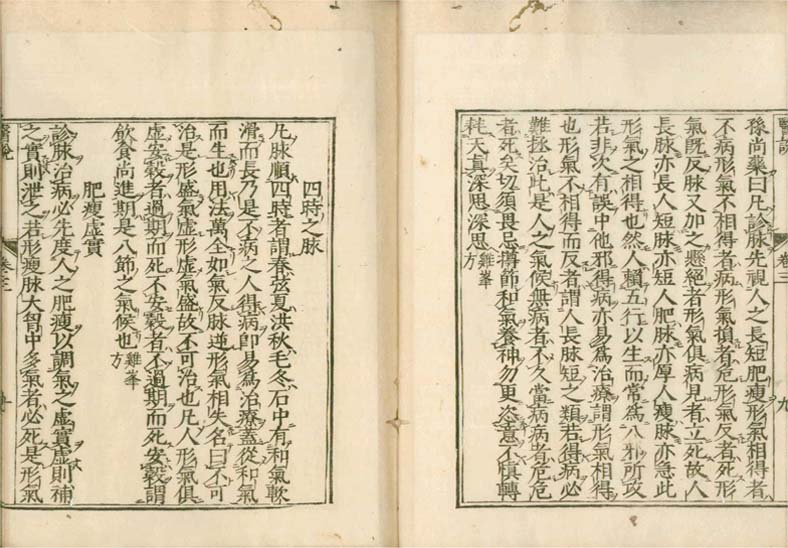 醫説 卷三 九
孫尚藥曰凡診脉先視人之長短肥瘦形氣相得者
不病形氣不相得者病形氣損者危形氣反者死形
氣既反脉又加之懸絕者形氣俱病見者立死故人
長脉亦長人短脉亦短人肥脉亦厚人瘦脉亦急此
形氣之相得也然人賴五行以生而常爲八邪所攻
若非次有誤中他邪得病亦易爲治療謂形氣相得
也形氣不相得而反者謂人長脉短之類若得病必
難拯治此是人之氣候無病者不久當病病者危危
者死矣切須畏忌撙節和氣養神勿更恣意不愼轉
耗天真深思深思雞峯方
四時之脉
凡脉順四時者謂春弦夏洪秋毛冬石中有和氣軟
滑而長乃是不病之人得病卽易爲治療蓋從和氣
而生也用法萬全如氣反脉逆形氣相失名曰不可
治是形盛氣虛形虛氣盛故不可治也凡人形氣俱
虛安穀者過期而死不安穀者不過期而死安穀謂
飲食尚進期是八節之氣候也雞峯方
肥瘦虛實
診脉治病必先度人之肥瘦以調氣之虛實虛則補
之實則泄之若形瘦脉大胷中多氣者必死是形氣
醫説 卷三